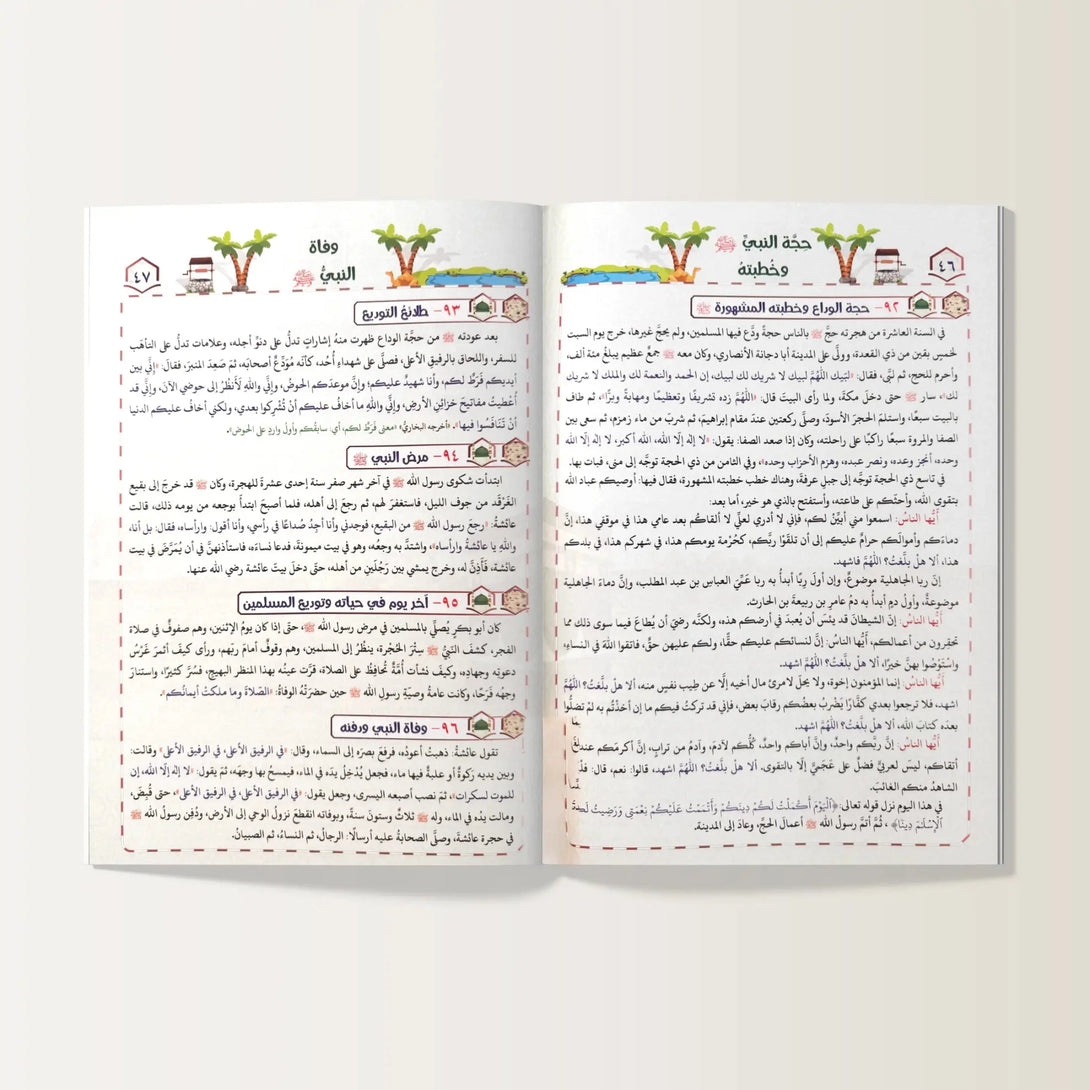 ٤٦
حِجَّة النبيِّ ﷺ
وخُطبتهُ
٩٢- حجة الوداع وخطبته المشهورة ﷺ
في السنة العاشرة من هجرته حجَّ ﷺ بالناس حجةً ودَّع فيها المسلمين، ولم يحجَّ غيرها، خرج يوم السبت
لخمسٍ بقين من ذي القعدة، وولَّى على المدينة أبا دجانة الأنصاري، وكان معه ﷺ جمعٌ عظيم يبلغُ مئة ألف،
وأحرم للحج، ثم لبَّى، فقال: «لبَّيك اللَّهُمَّ لبيك لا شريك لك لبيك، إن الحمد والنعمة لك والملك لا شريك
لك»، سار ﷺ حتى دخل مكة، ولما رأى البيتَ قال: «اللَّهُمَّ زده تشريفًا وتعظيمًا ومهابةً وبرًّا»، ثم طاف
بالبيت سبعًا، واستلمَ الحجرَ الأسودَ، وصلَّى ركعتين عندَ مقام إبراهيمَ، ثم شربَ من ماء زمزم، ثم سعى بين
الصفا والمروة سبعًا راكبًا على راحلته، وكان إذا صعد الصفا: يقول: «لا إلهَ إلَّا الله، الله أكبر، لا إلهَ إلَّا الله
وحده، أنجز وعده، ونصر عبده، وهزم الأحزاب وحده»، وفي الثامن من ذي الحجة توجَّه إلى منى، فبات بها.
في تاسع ذي الحجة توجَّه إلى جبلِ عرفة، وهناك خطب خطبته المشهورة، فقال فيها: أوصيكم عباد الله
بتقوى الله، وأحثّكم على طاعته، وأستفتح بالذي هو خير، أما بعد:
أَيُّها الناسُ: اسمعوا مني أبيِّنْ لكم، فإني لا أدري لعلّي لا ألقاكُم بعد عامي هذا في موقفي هذا، إنَّ
دماءَكم وأموالَكم حرامٌ عليكم إلى أن تلقَوْا ربَّكم، كحُرْمة يومكم هذا، في شهركم هذا، في بلدكم
هذا، ألا هلْ بلَّغتُ؟ اللَّهُمَّ فاشهد.
إنَّ ربا الجاهلية موضوعٌ، وإن أولَ ربًا أبدأُ به ربا عَمِّيَ العباسِ بن عبد المطلب، وإنَّ دماءَ الجاهلية
موضوعةٌ، وأولُ دمٍ أبدأُ به دمُ عامرِ بن ربيعةَ بن الحارث.
أَيُّها الناسُ: إنَّ الشيطانَ قد يئسَ أن يُعبدَ في أرضكم هذه، ولكنَّه رضيَ أن يُطاعَ فيما سوى ذلك مما
تحقِرون من أعمالكم، أيُّها الناسُ: إنَّ لنسائكم عليكم حقًّا، ولكم عليهن حقٌّ، فاتقوا اللهَ في النساءِ،
واستَوْصُوا بهنَّ خيرًا، ألا هلْ بلَّغتُ؟ اللَّهُمَّ اشهد.
أَيُّها الناسُ: إنما المؤمنون إخوة، ولا يحلّ لامرئٍ مالُ أخيه إلَّا عن طِيب نفسٍ منه، ألا هلْ بلَّغتُ؟ اللَّهُمَّ
اشهد، فلا ترجعوا بعدي كفَّارًا يَضْربُ بعضُكم رقابَ بعض، فإني قد تركتُ فيكم ما إن أخذْتُم به لم تضلُّوا
بعدَه كتابَ الله، ألا هلْ بلَّغتُ؟ اللَّهُمَّ اشهد.
أَيُّها الناسُ: إنَّ ربَّكم واحدٌ، وإنَّ أباكم واحدٌ، كُلُّكم لآدمَ، وآدمُ من ترابٍ، إنَّ أكرمَكم عندَ
أتقاكم، ليسَ لعربيٍّ فضلٌ على عَجَميٍّ إلَّا بالتقوى، ألا هلْ بلَّغتُ؟ اللَّهُمَّ اشهد، قالوا: نعم، قال:
الشاهدُ منكم الغائبَ.
في هذا اليوم نزل قوله تعالى: ﴿ٱلْيَوْمَ أَكْمَلْتُ لَكُمْ دِينَكُمْ وَأَتْمَمْتُ عَلَيْكُمْ نِعْمَتِي وَرَضِيتُ
ٱلْإِسْلَٰمَ دِينًا﴾، ثُمَّ أتمَّ رسولُ الله ﷺ أعمالَ الحجِّ، وعادَ إلى المدينة.
٤٧
وفاة
النبيُّ ﷺ
٩٣- طلائعُ التوديع
بعد عودته ﷺ من حجَّة الوداع ظهرت منهُ إشاراتٍ تدلُّ على دنوِّ أجله، وعلامات تدلُّ على التأهّب
للسفر، واللحاق بالرفيق الأعلى، فصلَّى على شهداءِ أُحُد، كأنّه مُوَدِّعٌ أصحابَه، ثمّ صَعِدَ المنبرَ، فقال: «إنِّي بين
أيديكم فَرَطٌ لكم، وأنا شهيدٌ عليكم؛ وإنَّ موعدَكم الحوضُ، وإنَّي واللهِ لَأَنظُرُ إلى حوضي الآن، وإنَّي قد
أُعْطِيتُ مفاتيحَ خزائنِ الأرضِ، وإنَّي واللهِ ما أخافُ عليكم أنْ تُشْرِكوا بعدي، ولكني أخافُ عليكم الدنيا
أنْ تَنَافَسُوا فيها». «أخرجه البخاريُّ» «معنى فَرَطٌ لكم، أي: سابقُكم وأولُ واردٍ على الحوض».
٩٤- مرض النبي ﷺ
ابتدأت شكوى رسولِ الله ﷺ في آخر شهر صفر سنة إحدى عشرةَ للهجرة، وكان ﷺ قد خرجَ إلى بقيع
الغَرْقَد من جوف الليل، فاستغفرَ لهم، ثم رجعَ إلى أهله، فلما أصبحَ ابتدأَ بوجعه من يومه ذلك، قالت
عائشةُ: «رجعَ رسولُ الله ﷺ من البقيع، فوجدني وأنا أجِدُ صُداعًا في رأسي، وأنا أقول: وارأساه، فقال: بل أنا،
واللهِ يا عائشةُ وارأساه»، واشتدَّ به وجعُه، وهو في بيت ميمونةَ، فدعا نساءَه، فاستأذنهنَّ في أن يُمرَّضَ في بيت
عائشةَ، فَأَذِنَّ له، وخرج يمشي بين رَجُلَينِ من أهله، حتَّى دخلَ بيتَ عائشة رضي الله عنها.
٩٥- آخر يوم في حياته وتوديع المسلمين
كان أبو بكرٍ يُصلِّي بالمسلمين في مرض رسول الله ﷺ، حتَّى إذا كان يومُ الإثنين، وهم صفوفٌ في صلاة
الفجر، كشفَ النبيُّ ﷺ سِتْرَ الحُجْرة، ينظُرُ إلى المسلمين، وهم وقوفٌ أمامَ ربّهم، ورأى كيفَ أثمرَ غَرْسُ
دعوته وجهادِه، وكيفَ نشأت أُمَّةٌ تُحافِظُ على الصلاة، قرَّت عينُه بهذا المنظر البهيج، فسُرَّ كثيرًا، واستنارَ
وجهُه فَرَحًا، وكانت عامةُ وصيَّةِ رسولِ الله ﷺ حين حضرَتْهُ الوفاةُ: «الصّلاةَ وما ملكتْ أيمانُكم».
٩٦- وفاة النبي ودفنه
تقول عائشةُ: ذهبتُ أعودُه، فرفعَ بصرَه إلى السماء، وقال: «في الرفيق الأعلى، في الرفيق الأعلى» وقالت:
وبين يديه رَكوةٌ أو علبةٌ فيها ماء، فجعل يُدْخِلُ يدَه في الماء، فيمسحُ بها وجهَه، ثمّ يقول: «لا إلهَ إلَّا الله، إن
للموت لسكرات»، ثمّ نصب أصبعه اليسرى، وجعل يقول: «في الرفيق الأعلى، في الرفيق الأعلى»، حتى قُبِضَ،
ومالت يدُه في الماء، وله ﷺ ثلاثٌ وستونَ سنةً، وبوفاته انقطعَ نزولُ الوحي إلى الأرض، ودُفِن رسولُ الله ﷺ
في حجرة عائشةَ، وصلَّى الصحابةُ عليه أرسالًا: الرجالُ، ثم النساءُ، ثم الصبيانُ.